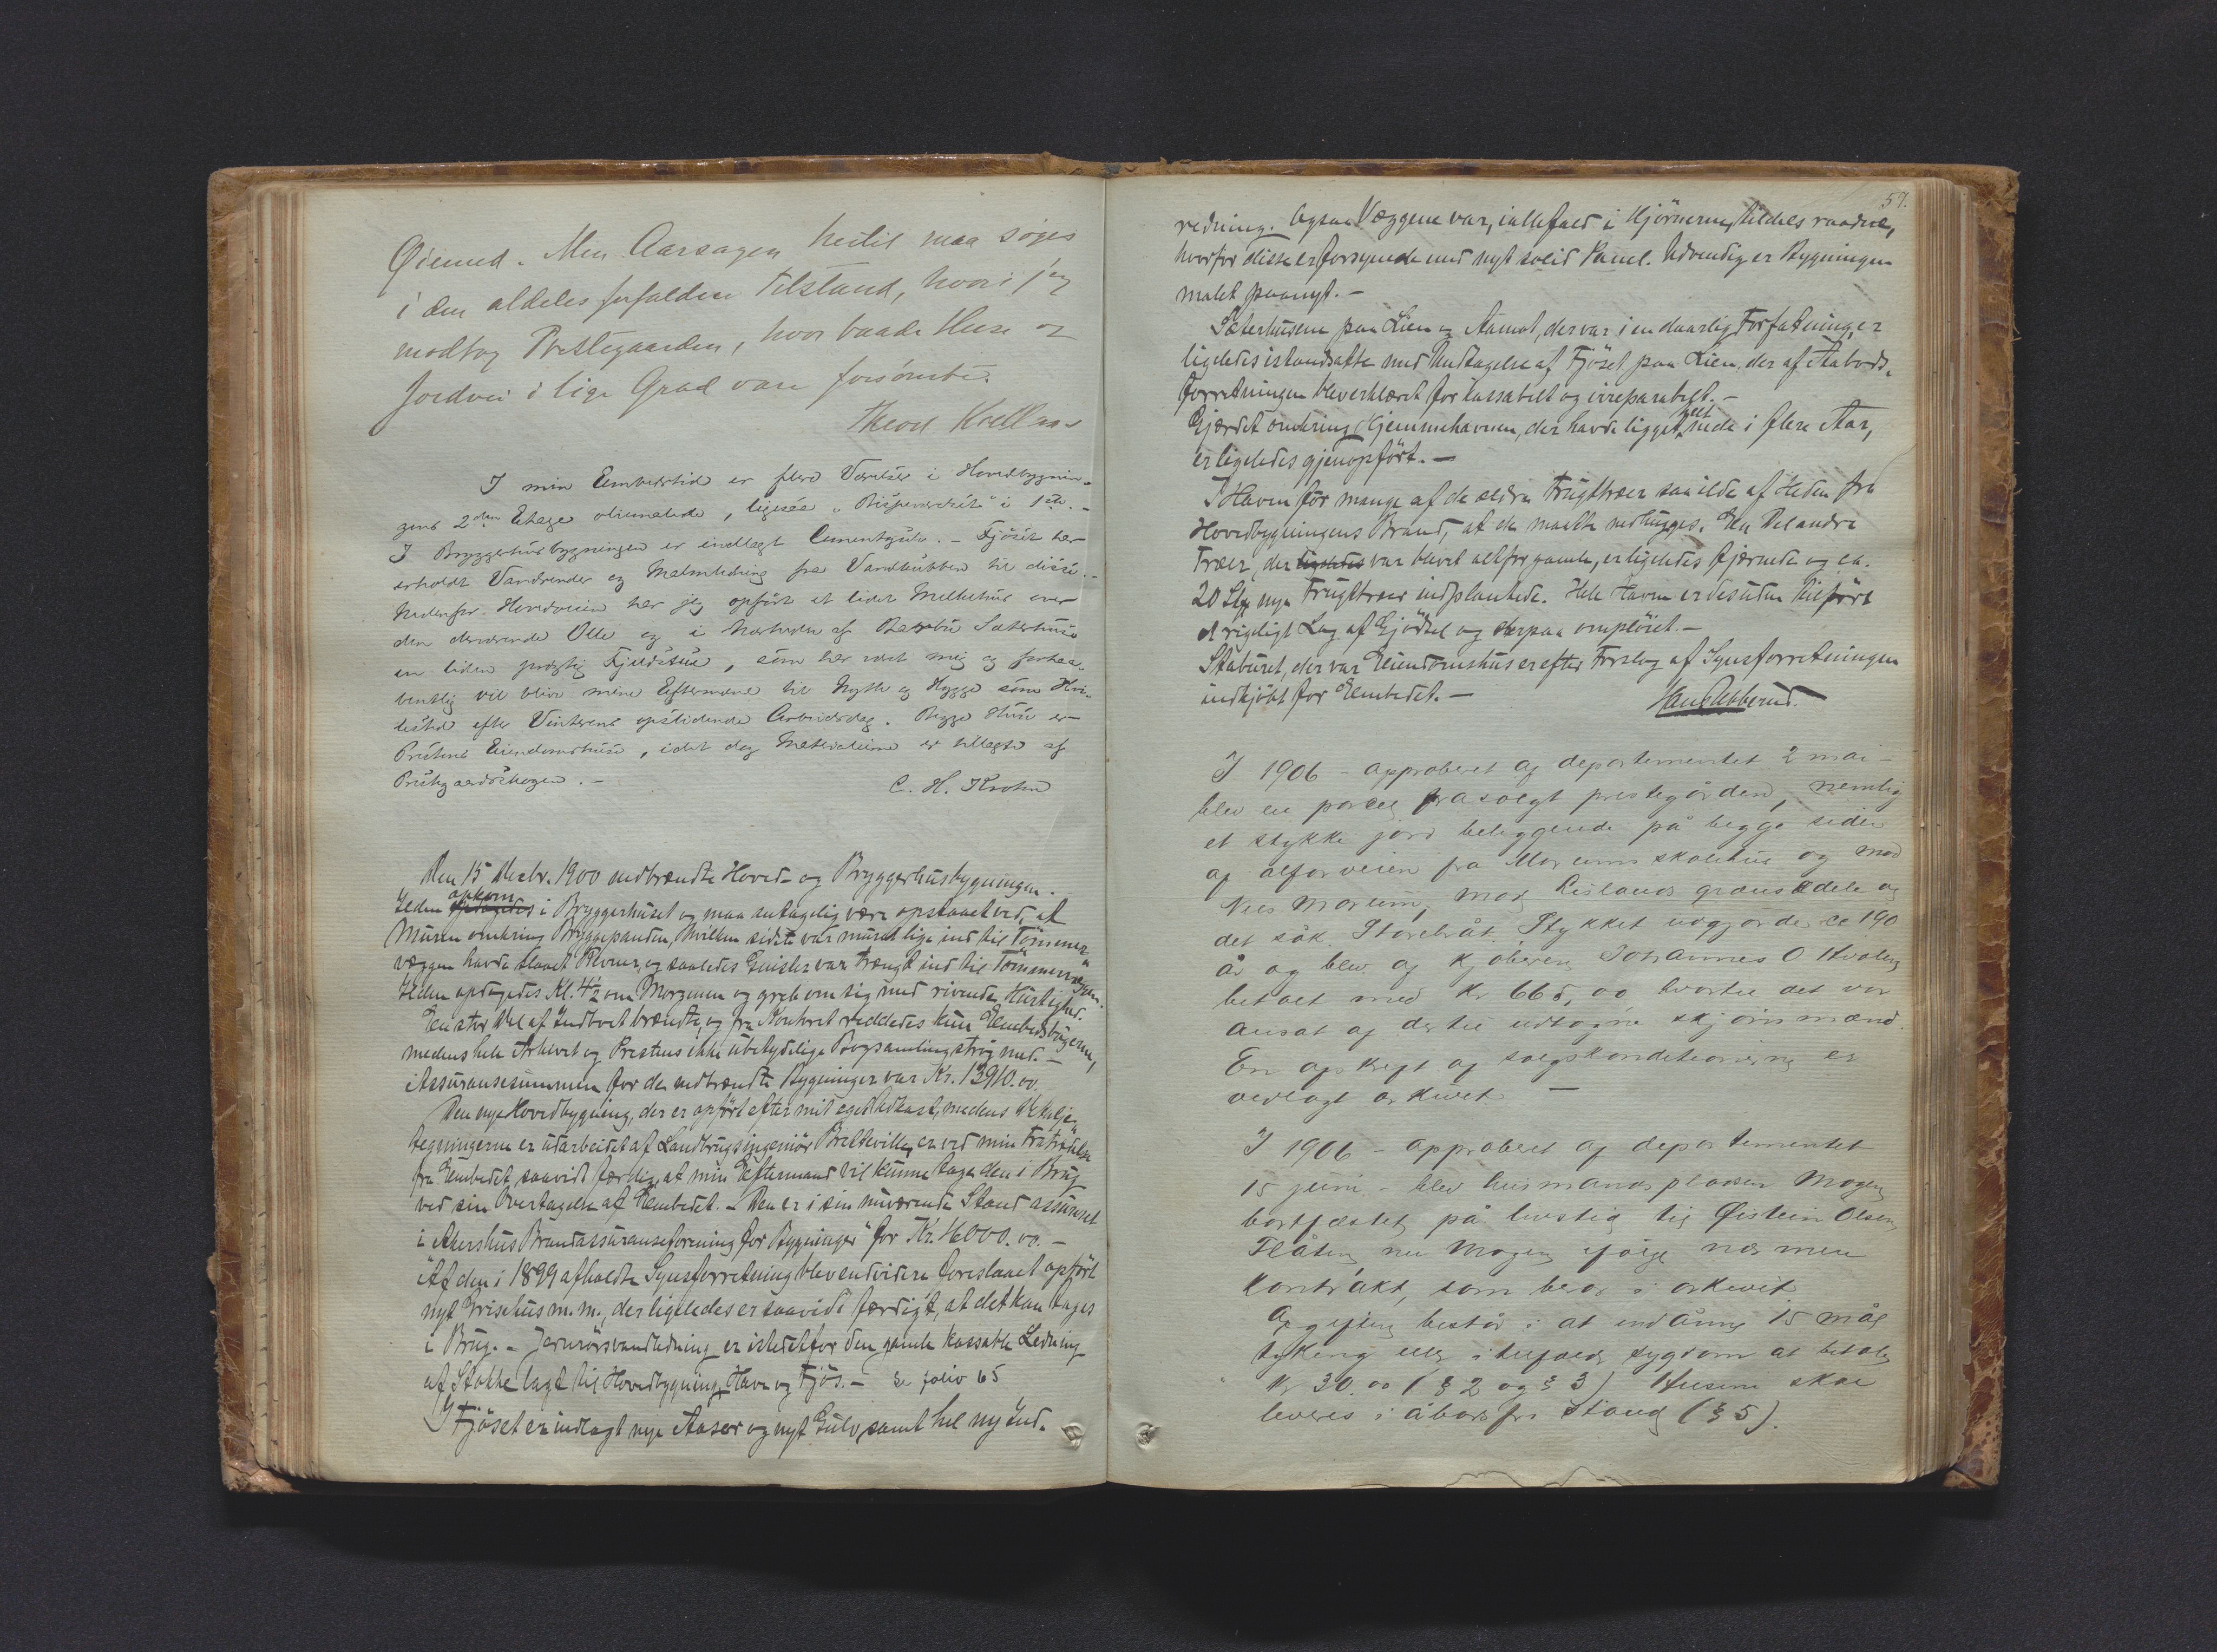 Øiemed. Men Aarsagen hertil maa søges
i den aldeles forfaldne Tilstand, hvori jeg
modtog Præstegaarden, hvor baade Huse og
Jordvei i lige Grad vare forsømte.
Theod
I min Embedstid er flere Værelser i Hovedbygnin-
gens 2den Etage oliemalede, ligesaa "Bispeværelset" i 1ste. -
I Bryggerhusbygningen er indlagt Cementgulv. - Fjöset har
erholdt Vandrender og Malmledning fra Vandkubben til disse. -
Nedenfor Hovedveien har jeg opført et lidet Melkehus over
den derværende Olle og i Nærheden af Sæterhuse
en liden prægtig Fjeldstue, som har været mig og forhaa-
bentlig vil blive mine Eftermænd til Nytte og Hygge som Hvi-
lested efter Vinterens opslidende Arbeidsdag. Begge Huse er
Præstens Eiendomshuse, idet dog Materialerne er tillagte af
Præstegaardsskogen. -
C. H. Krohn
Den 15 Decbr. 1900 nedbrændte Hoved- og Bryggerhusbygningen.
Ilden opkom i Bryggerhuset og maa antagelig være opstaaet ved, at
Muren omkring Bryggepanden, hvilken sidste var muret lige ind til Tömmer-
væggen havde slaaet Revner, og saaledes Gnister var trængt ind til Tömmervæggen.
Ilden opdagedes Kl. 4½ om Morgenen og greb om sig med rivende Hurtighed.
En stor Del af Indboet brændte, og fra Kontoret reddedes kun Embedsbøgerne,
medens hele Arkivet og Prestens ikke ubetydelige Bogsamling strøg med. -
Assuransesummen for de nedbrændte Bygninger var Kr. 13910.00.
Den nye Hovedbygning, der er opført efter mit eget Udkast, medens Detalje-
tegningerne er udarbeidet af Landbrugsingeniör Brelteville, er ved min Fratrædelse
fra Embedet saavidt færdig, at min Eftermand vil kunne tage den i Brug
ved sin Overtagelse af Embedet. - Den er i sin nuværende Stand assureret
i "Akershus Brandassuranseforening for Bygninger" for Kr. 16000.00. -
Af den i 1899 afholdte Synsforretning blev endvidere foreslaaet opført
nyt Grisehus m.m., der ligeledes er saavidt færdigt, at det kan tages
i Brug. - Jernrörsvandledning er istedetfor den gamle kassable Ledning
af Stokke lagt til Hovedbygning, Have og Fjös. - Se folio 65
I Fjöset er indlagt nye Aaser og nyt Gulv, samt hel ny Ind-
57.
redning. Ogsaa Væggene var, iallefald i Hjörnerne, tildels raadne,
hvorfor disse er forsynede med nyt solid Panel. Udvendig er Bygningen
malet paanyt. -
Sæterhusene paa Lien og Aamot, der var i en daarlig Forfatning, er
ligeledes istandsatte med Undtagelse af Fjöset paa Lien, der af Aabods-
forretningen blev erklæret for kassabelt og irreparabelt. -
Gjærdet omkring Hjemmehavnen, der havde ligget helt nede i flere Aar,
er ligeledes gjenopført. -
I Haven för mange af de ældre Frugttræer saa ilde af Heden fra
Hovedbygningens Brand, at de maatte nedhugges. En Del andre
Træer, der ligeledes var blevet altfor gamle, er ligeledes fjærnede og ca.
20 Stk nye Frugttræer indplantede. Hele Haven er desuden tilført
et rigeligt Lag af Gjödsel og derpaa ompløiet. -
Staburet, der var Eiendomshus er efter Forslag af Synsforretningen
indkjöbt for Embedet. -
Hans Abberud.
I 1906 - approberet af departementet 2 mai -
blev en parcel frasolgt prestegården, nemlig
et stykke jord beliggende på begge sider
af alfarveien fra skolehus og mod
Nils mod Rislands grænsedele og
det såk. Storebråt. Stykket udgjorde ca 190
år og blev af kjøberen Johannes O
betalt med kr 665,00 hvortil det var
ansat af dertil udtagne skjønsmænd.
En afskrift af salgskonditionerne er
vedlagt arkivet. -
I 1906 - approberet af departementet
15 juni - blev husmandspladsen Mogen
bortfæstet på livstid til Øistein Olsen
Flåten, nu Mogen ifølge nærmere
kontrakt, som beror i arkivet
Afgiften består i: at indånne 15 mål
eller i tilfælde sygdom at betale
kr 30.00 (§ 2 og § 3) Husene skal
leveres i åbodsfri stand (§ 5).